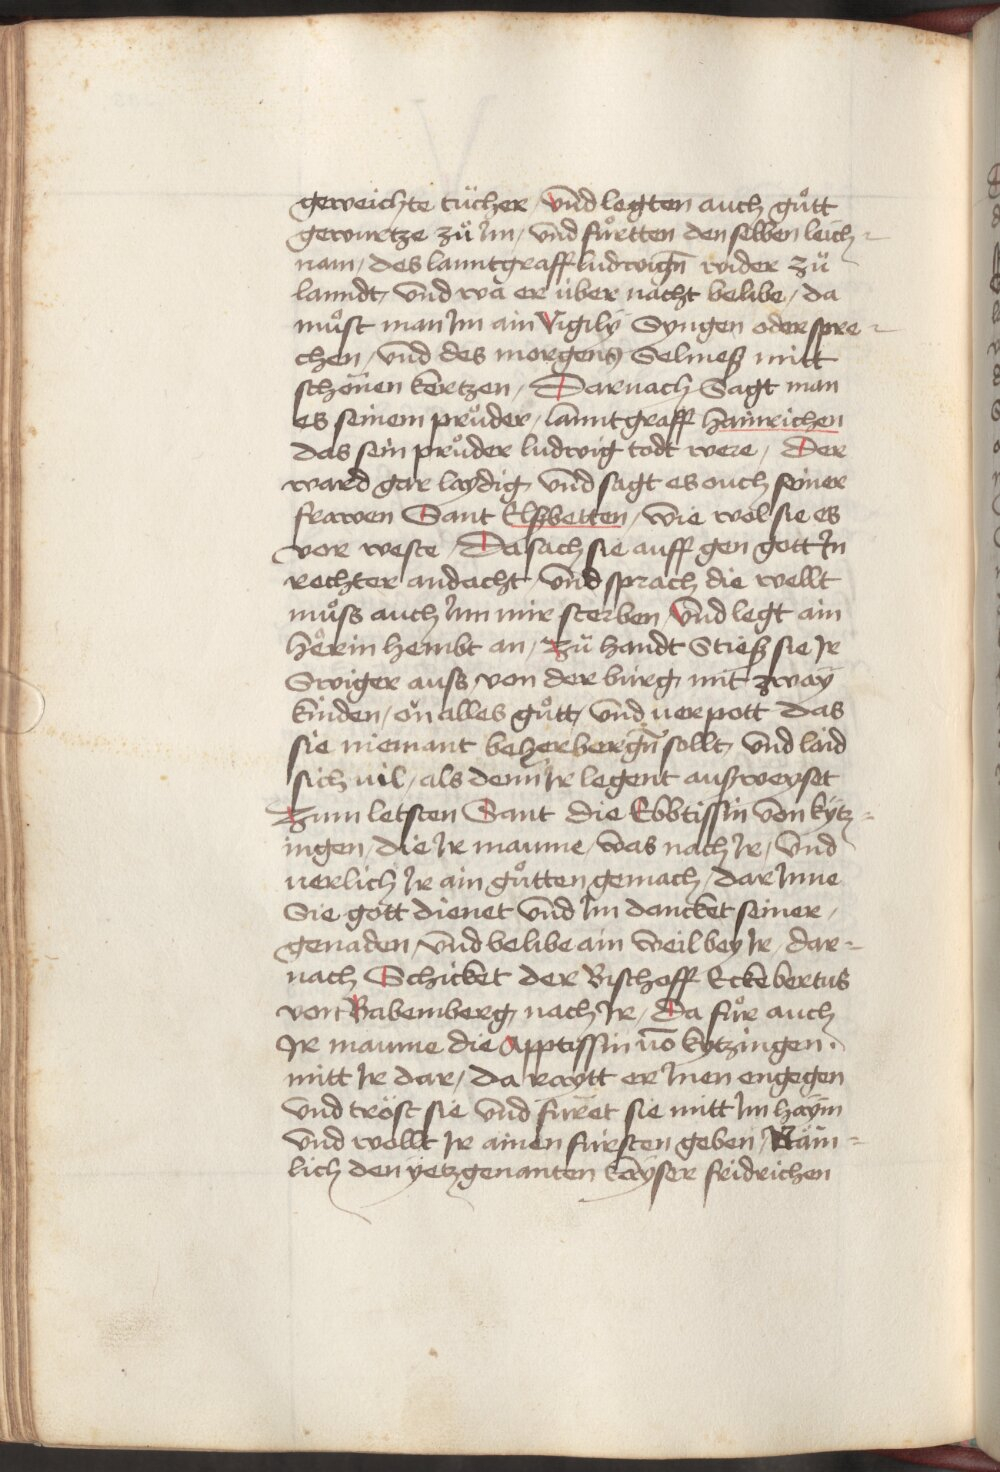 geweichte tücher / vnd legten auch gůtt
gewurtze zů Im / vnd fůrtten den selben leich-
nam / des lanntgraff ludwign̄ wider zů
lanndt / vnd wa er über nacht belibe / da
můst man Im ain Vigily Syngen oder spre-
chen / vnd des morgens Selmeß mitt
schönen kertzen / Darnach Sagt man
es seinem průder / lanntgraff Hainrichen
das sein průder ludwig todt were / Der
ward gar laydig vnd sagt es ouch seiner
frawen Sant Elsbetten / wie wol sie es
vor weste / Da sach sie auff gen gott In
rechter andacht / vnd sprach die wellt
můss auch Inn mir sterben / vnd legt ain
herin hembt an / Zů handt Stieß sie Ir
Swiger auss von der burg mit zway
kinden / ön alles gůtt / vnd verpott das
sie niemant beherbergn̄ sollt / vnd laid
sich vil / als denn Ir legent außweyset
Zum letsten Sant die Ebbtissin von kytz-
ingen / die Ir maume / was nach Ir / vnd
verlich Ir ain gůtten gemach / dar Inne
Sie gott dienet vnd Im dancket seiner /
genaden / vnd belibe ain weil bey Ir / dar-
nach Schicket der Bischoff Eckebertus
von Babemberg nach Ir / Da fůr auch
Ir maume die Apptissin vō kytzingen .
mitt Ir dar / da raytt er Inen engegen
vnd tröst sie vnd füret sie mitt Im haym
vnd wollt Ir ainen fürsten geben / Näm-
lich den yetzgenanten kayser fridrichen